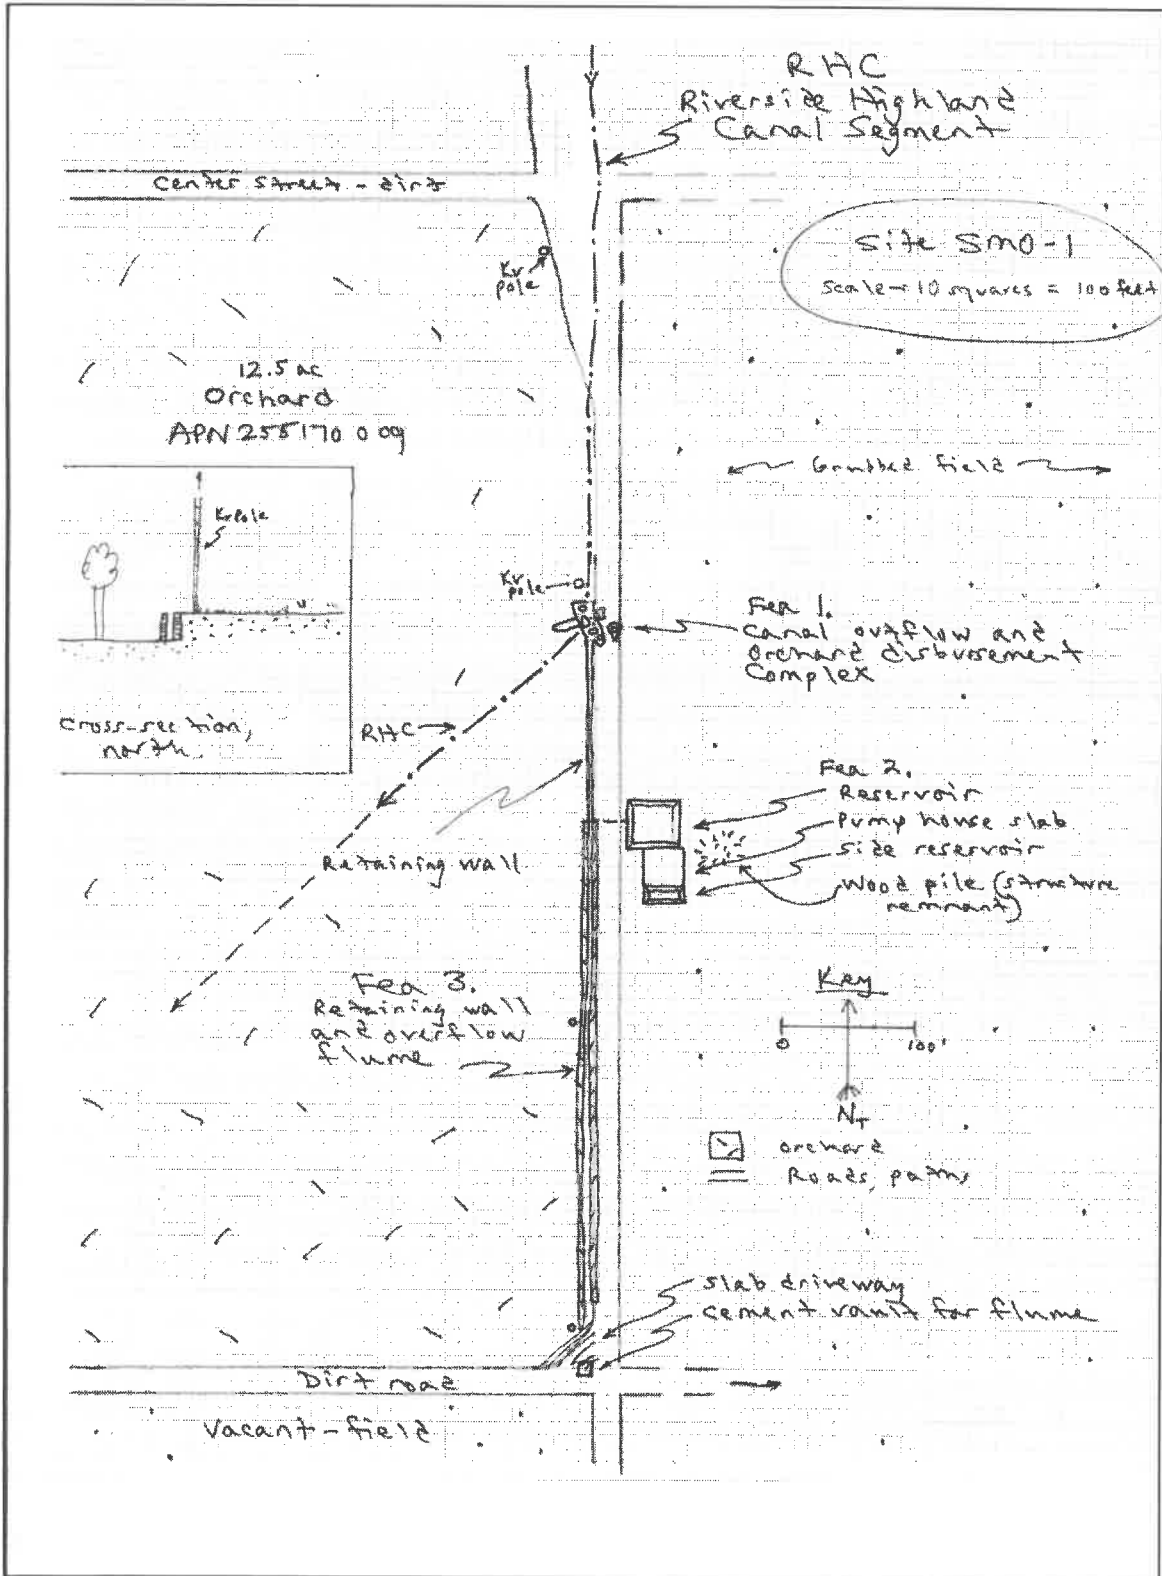 RHC
Riverside Highland
Canal Segment
Center Street - dirt
Site SMO-1
Scale - 10 squares = 100 feet
Kv
pole
12.5 ac
Orchard
APN 255170 009
Grubbed field
Kv pole
Kv
pole
Fea 1.
Canal outflow and
Orchard disbursement
Complex
Cross-section,
north.
RHC
Fea 2.
Reservoir
Pump house slab
Side reservoir
Wood pile (structure
remnant)
Retaining wall
Fea 3.
Retaining wall
and overflow
flume
Key
0 100'
NT
orchard
Roads, paths
Slab driveway
cement vault for flume
Dirt road
Vacant-field